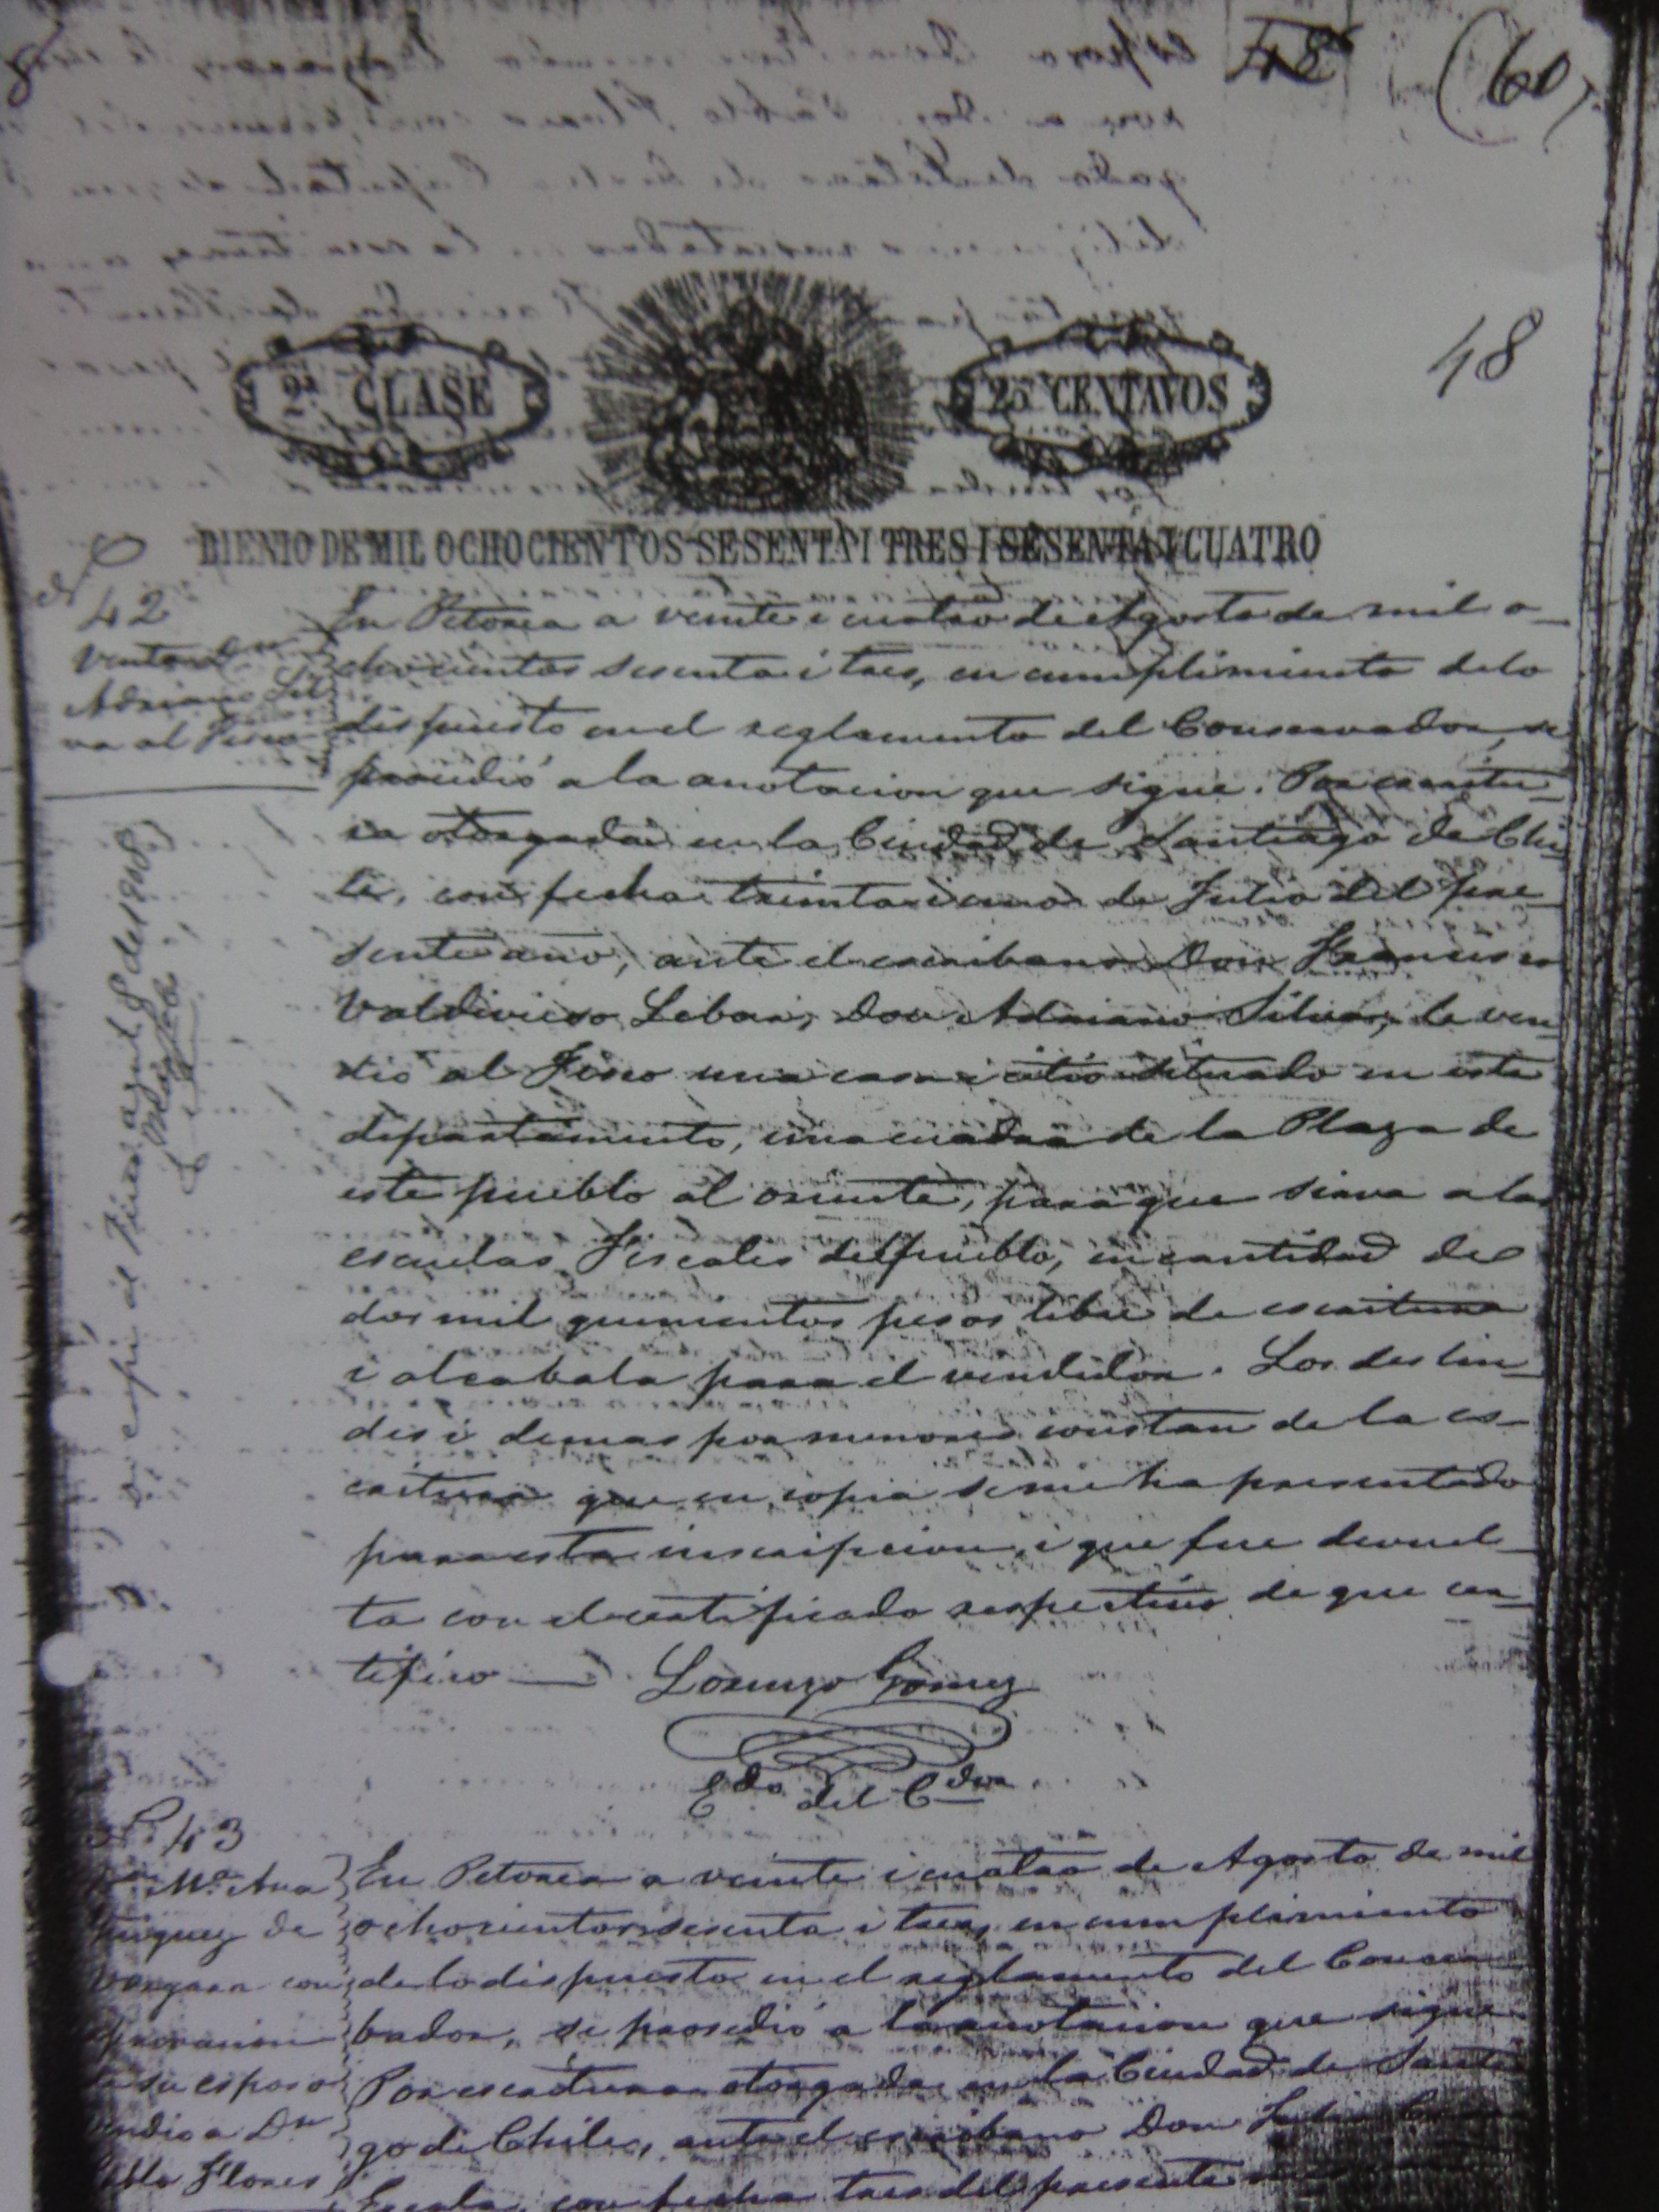 48
(60)
48
2ª CLASE
25 CENTAVOS
BIENIO DE MIL OCHOCIENTOS SESENTA I TRES I SESENTA I CUATRO
Nº 42
Venta Dn
Adriano Sil
va al Fisco
En Petorca a veinte i cuatro de Agosto de mil o-
chocientos sesenta i tres, en cumplimiento de lo
dispuesto en el reglamento del Conservador, se
procedió a la anotacion que sigue. Por escritu-
ra otorgada en la Ciudad de Santiago de Chi-
le, con fecha treinta i uno de Julio del pre-
sente año, ante el escribano Don Francisco
Valdivieso Don Adriano Silva, le ven-
dió al Fisco una casa i sitio situado en este
departamento, una cuadra de la Plaza de
este pueblo al oriente, para que sirva a las
escuelas Fiscales del pueblo, en cantidad de
dos mil quinientos pesos libre de escritura
i alcabala para el vendedor. Los deslin-
des i demas pormenores constan de la es-
critura que en copia se me ha presentado
para esta inscripcion, i que fue devuel-
ta con el certificado respectivo de que cer-
tifico — Lorenzo Gomez
Edo del Cdor
Di copia al Fisco de 1908
Nº 43
Mª Ana
iguez de
Vergara con
su esposo
vendio a Dn
Pablo Flores
En Petorca a veinte i cuatro de Agosto de mil
ochocientos sesenta i tres, en cumplimiento
de lo dispuesto en el reglamento del Conser
bador, se prosedió a la anotacion que sigue
Por escritura otorgada en la Ciudad de Santia
go de Chile, ante el escribano Don
con fecha tres del presente